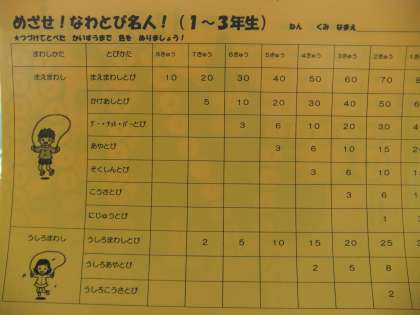 めざせ！なわとび名人！（１～３年生） ねん くみ なまえ
★つづけてとべた かいすうまで 色を ぬりましょう！
まわしかた とびかた 8きゅう 7きゅう 6きゅう 5きゅう 4きゅう 3きゅう 2きゅう 1きゅう
まえまわし まえまわしとび 10 20 30 40 50 60 70
かけあしとび 5 10 20 30 40 50
グー・チョキ・パーとび 3 6 10 20 30
あやとび 3 6 10 15
そくしんとび 3 6 10
こうさとび 3 6
にじゅうとび 1
うしろまわし うしろまわしとび 2 5 10 15 20 25
うしろあやとび 2 5 8
うしろこうさとび 2